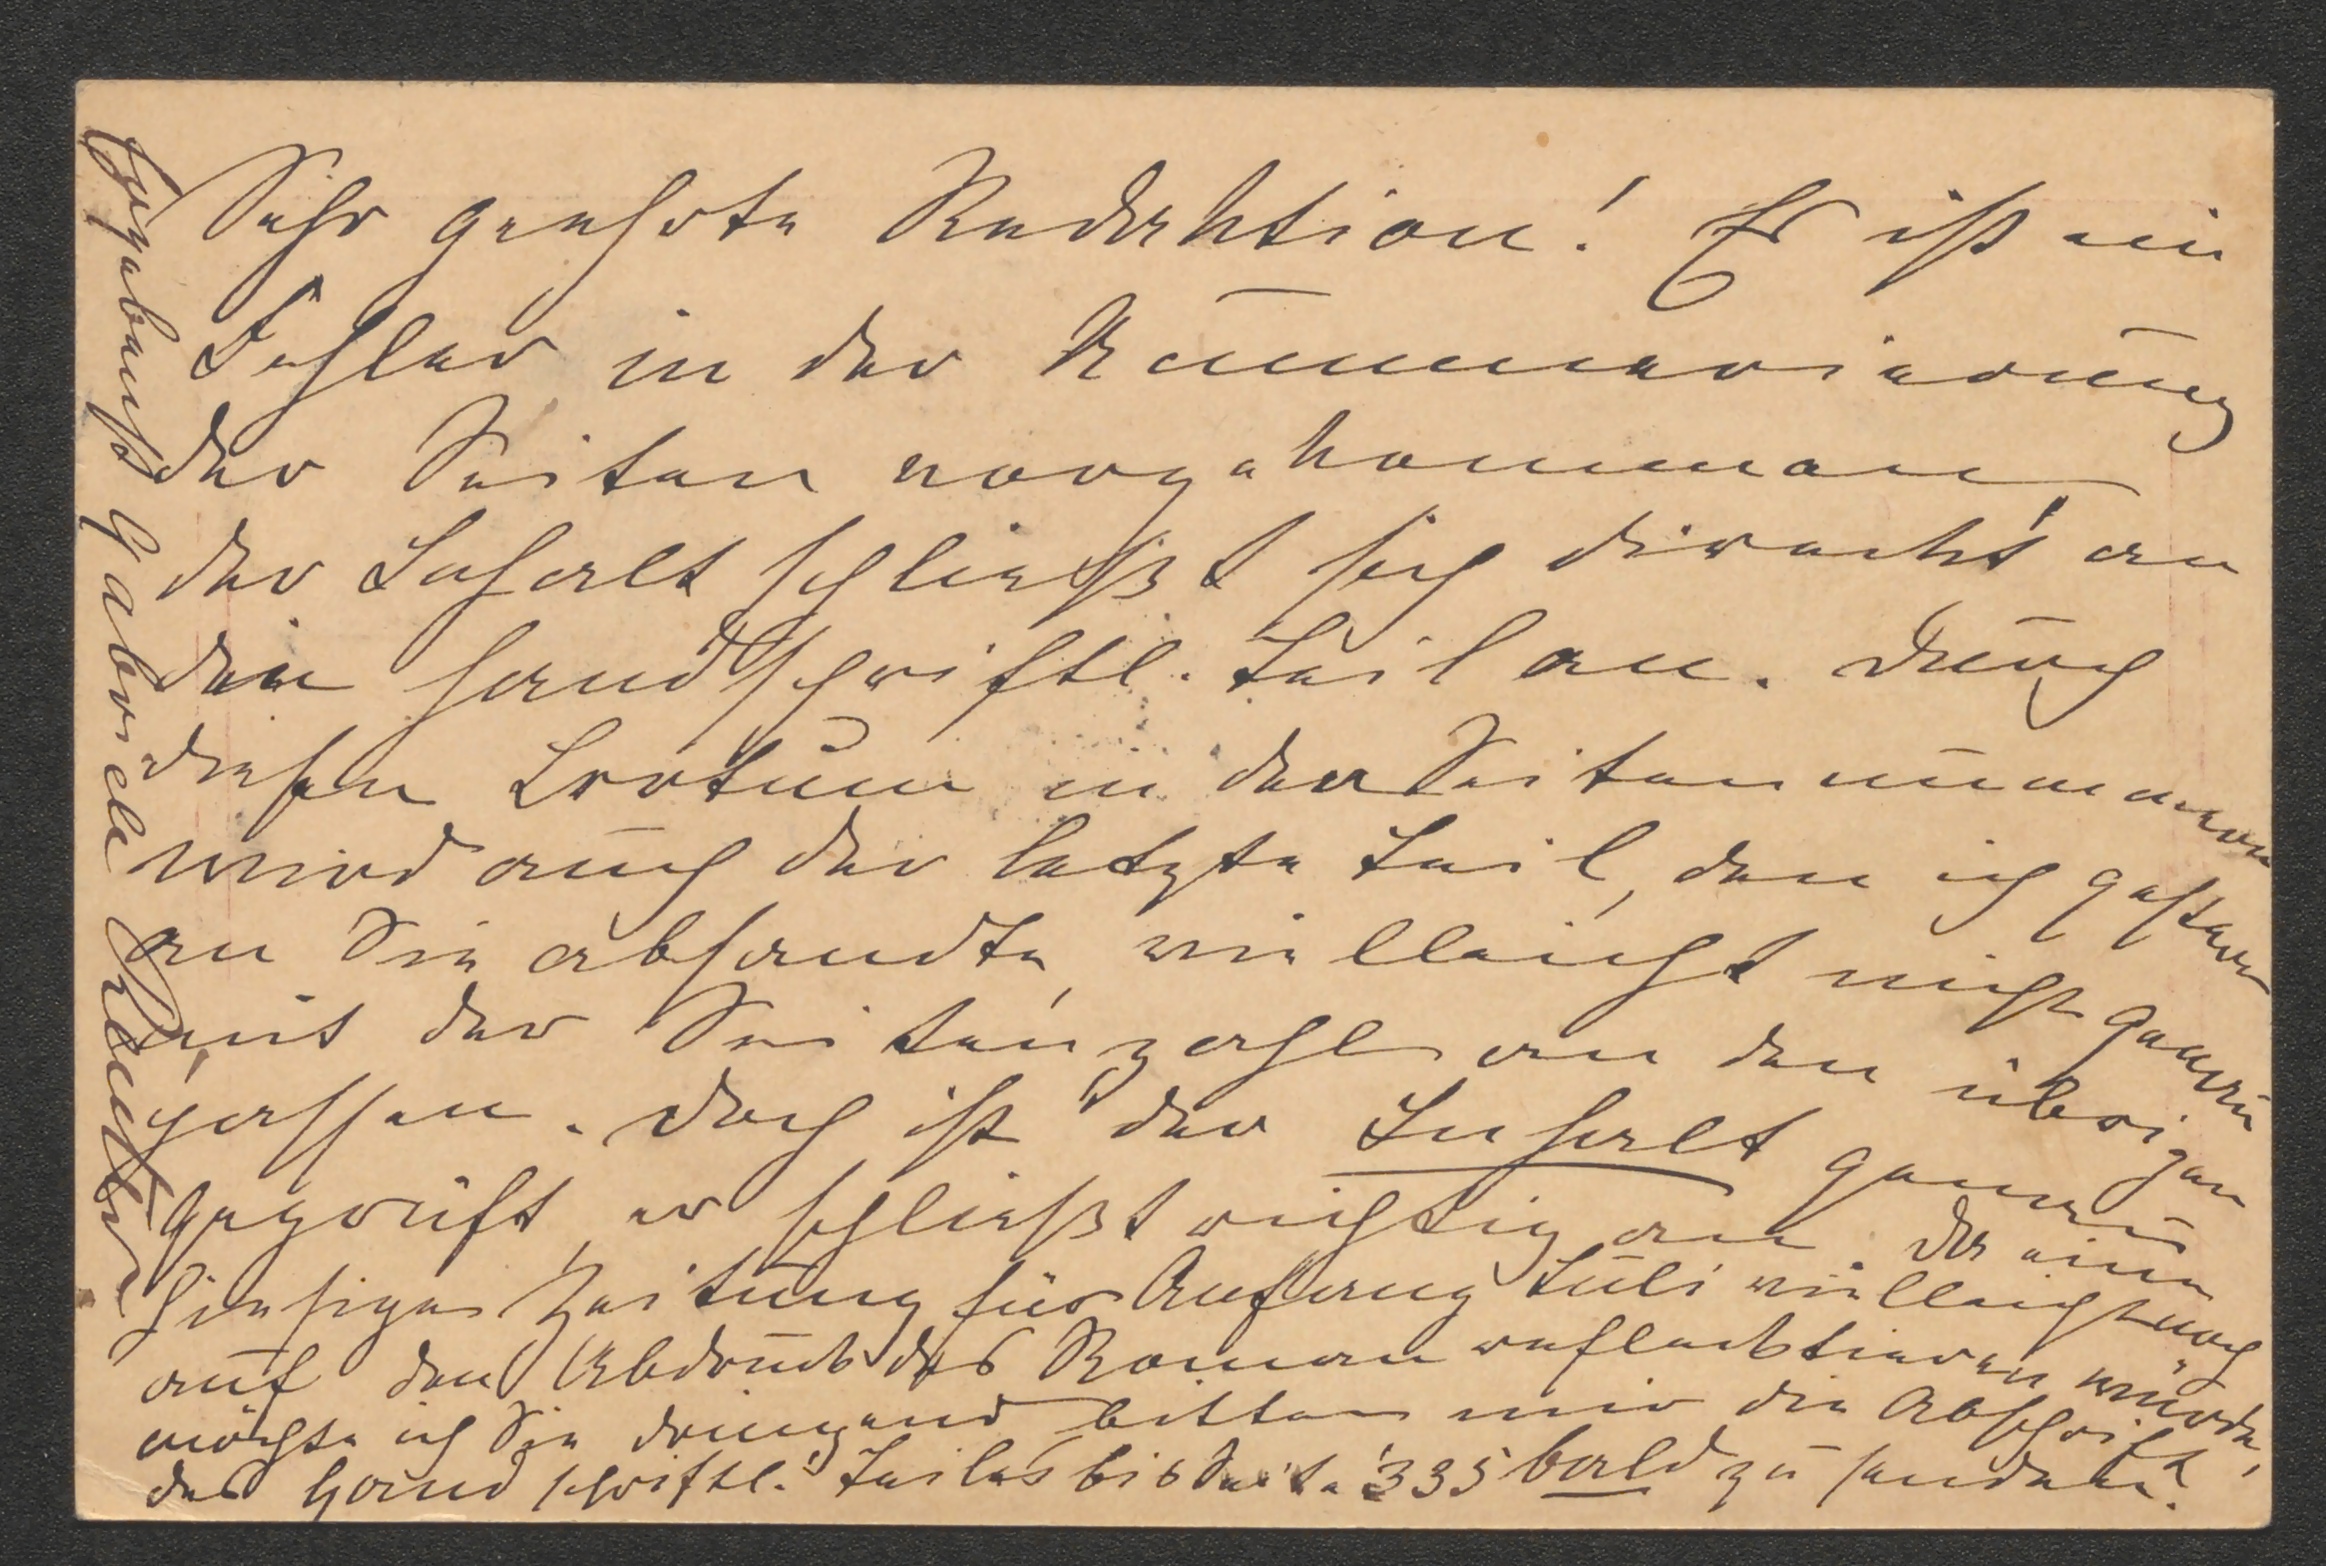 Sehr geehrte Redaktion! Es ist ein
Fehler in der Nummerierung
der Seiten vorgekommen,
der Inhalt schließt sich direckt an
den handschriftl. Teil an. Durch
diesen Irrtum in den Seitennummern
wird auch der letzte Teil, den ich gestern
an Sie absandte, vielleicht nicht genau
mit der Seitenzahl an den übrigen
passen. Doch ist der Inhalt genau
geprüft, er schließt richtig an. Da eine
hiesige Zeitung für Anfang Juli vielleicht noch
auf den Abdruck des Roman reflecktieren würde,
möchte ich Sie dringend bitten mir die Abschrift
des handschriftl. Teiles bis Seite 335 bald zu senden.
Ergebenst Gabriele Reuter